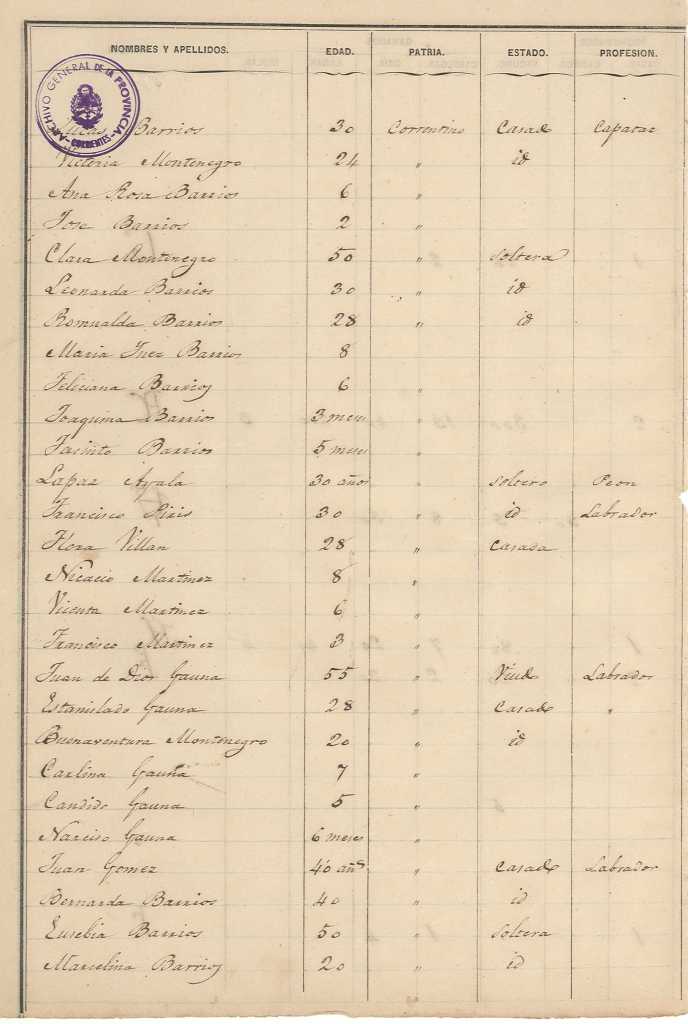 NOMBRES Y APELLIDOS. EDAD. PATRIA. ESTADO. PROFESION.
ARCHIVO GENERAL DE LA PROVINCIA
CORRIENTES
Lucas Barrios 30 Correntino Casado Capataz
Victoria Montenegro 24 " id
Ana Rosa Barrios 6 "
Jose Barrios 2 "
Clara Montenegro 50 " soltera
Leonarda Barrios 30 " id
Romualda Barrios 28 " id
Maria Inez Barrios 8 "
Feliciana Barrios 6 "
Joaquina Barrios 3 meses "
Jacinto Barrios 5 meses "
Lapaz Ayala 30 años " soltero Peon
Francisco Piris 30 " id Labrador
Flora Villan 28 " Casada
Nicacio Martinez 8 "
Vicenta Martinez 6 "
Francisco Martinez 3 "
Juan de Dios Gauna 55 " Viudo Labrador
Estanislado Gauna 28 " Casado "
Buenaventura Montenegro 20 " id
Carlina Gauna 7 "
Candido Gauna 5 "
Narciso Gauna 6 meses "
Juan Gomez 40 años " Casado Labrador
Bernarda Barrios 40 " id
Eusebia Barrios 50 " soltera
Marcelina Barrios 20 " id